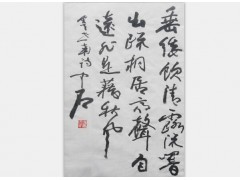 垂緌饮清露流响
出疏桐居高声自
远非是藉秋风